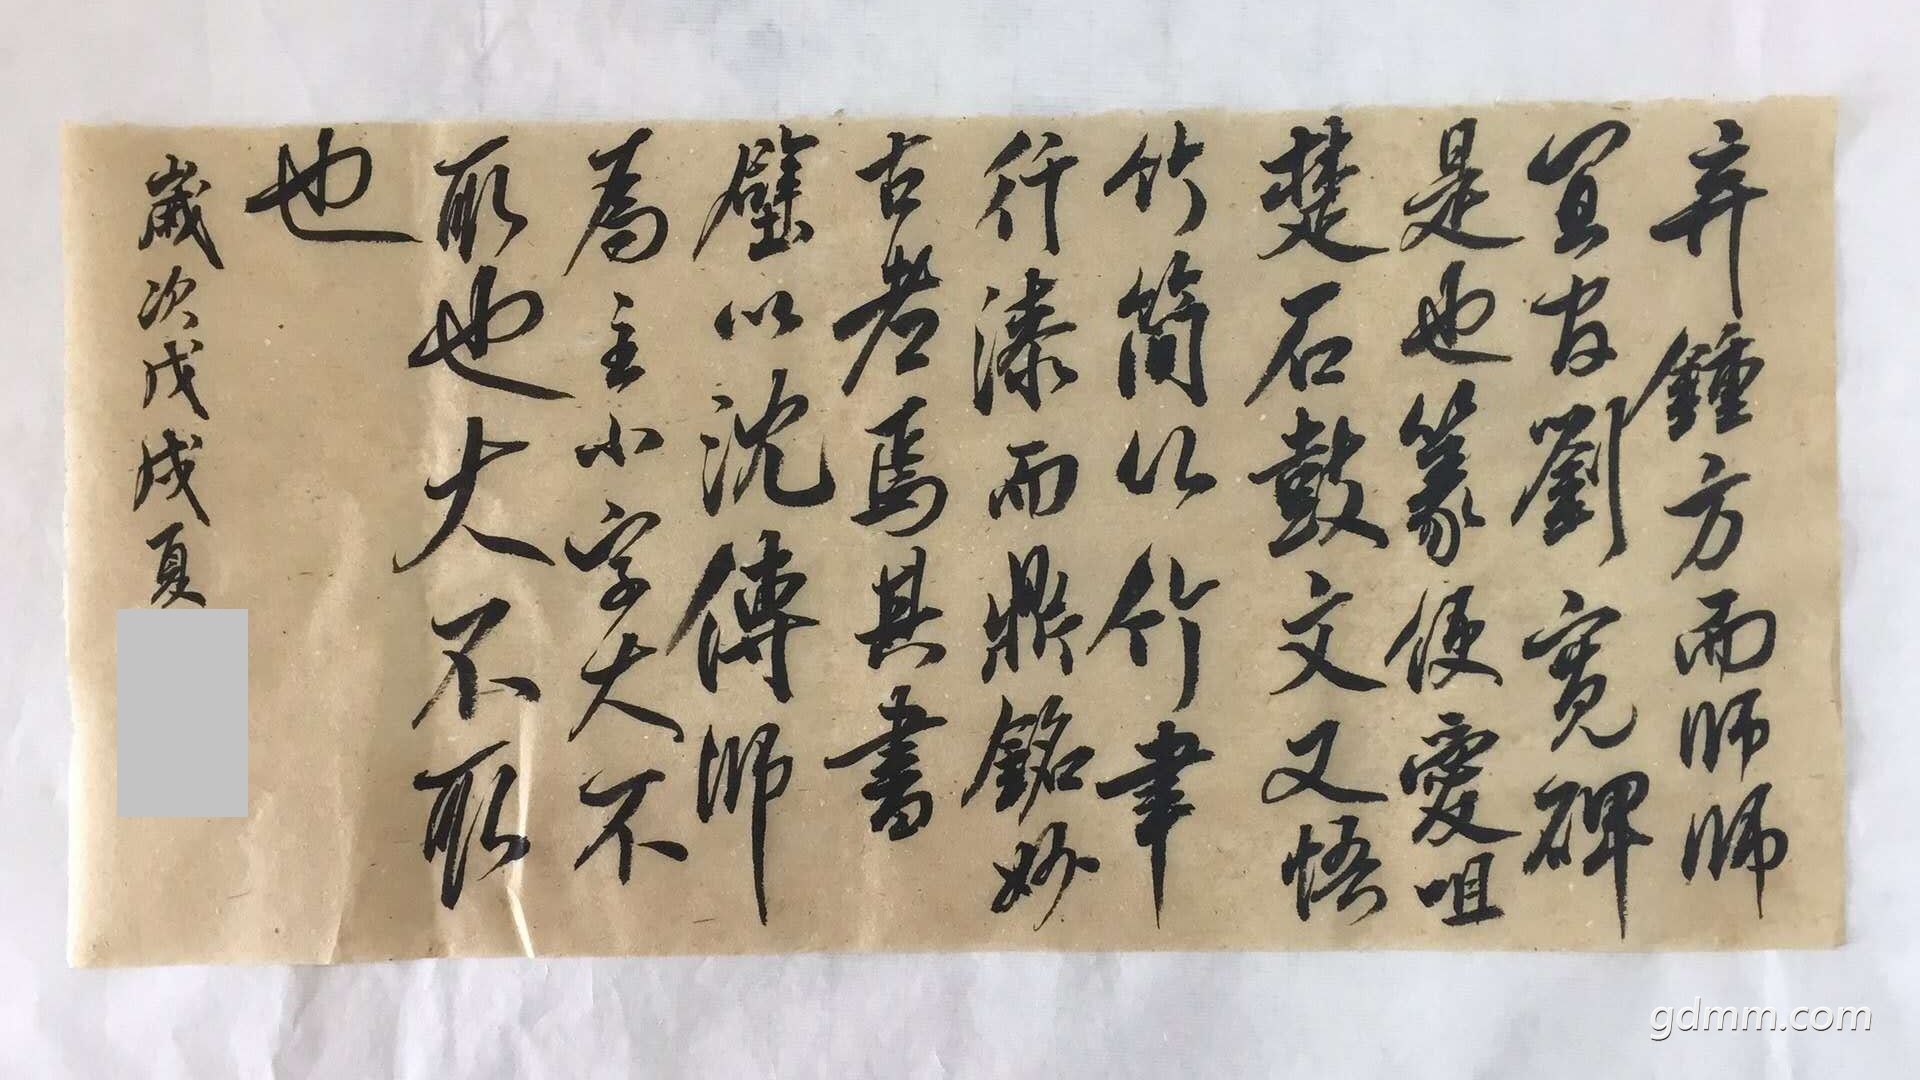 弃鍾方而師師
宜官劉寬碑
是也篆便愛咀
楚石鼓文又悟
竹簡以竹聿
行漆而鼎銘妙
古老焉其書
壁以沈傳師
為主小字大不
取也大不取
也
歲次戊戌夏
gdmm.com